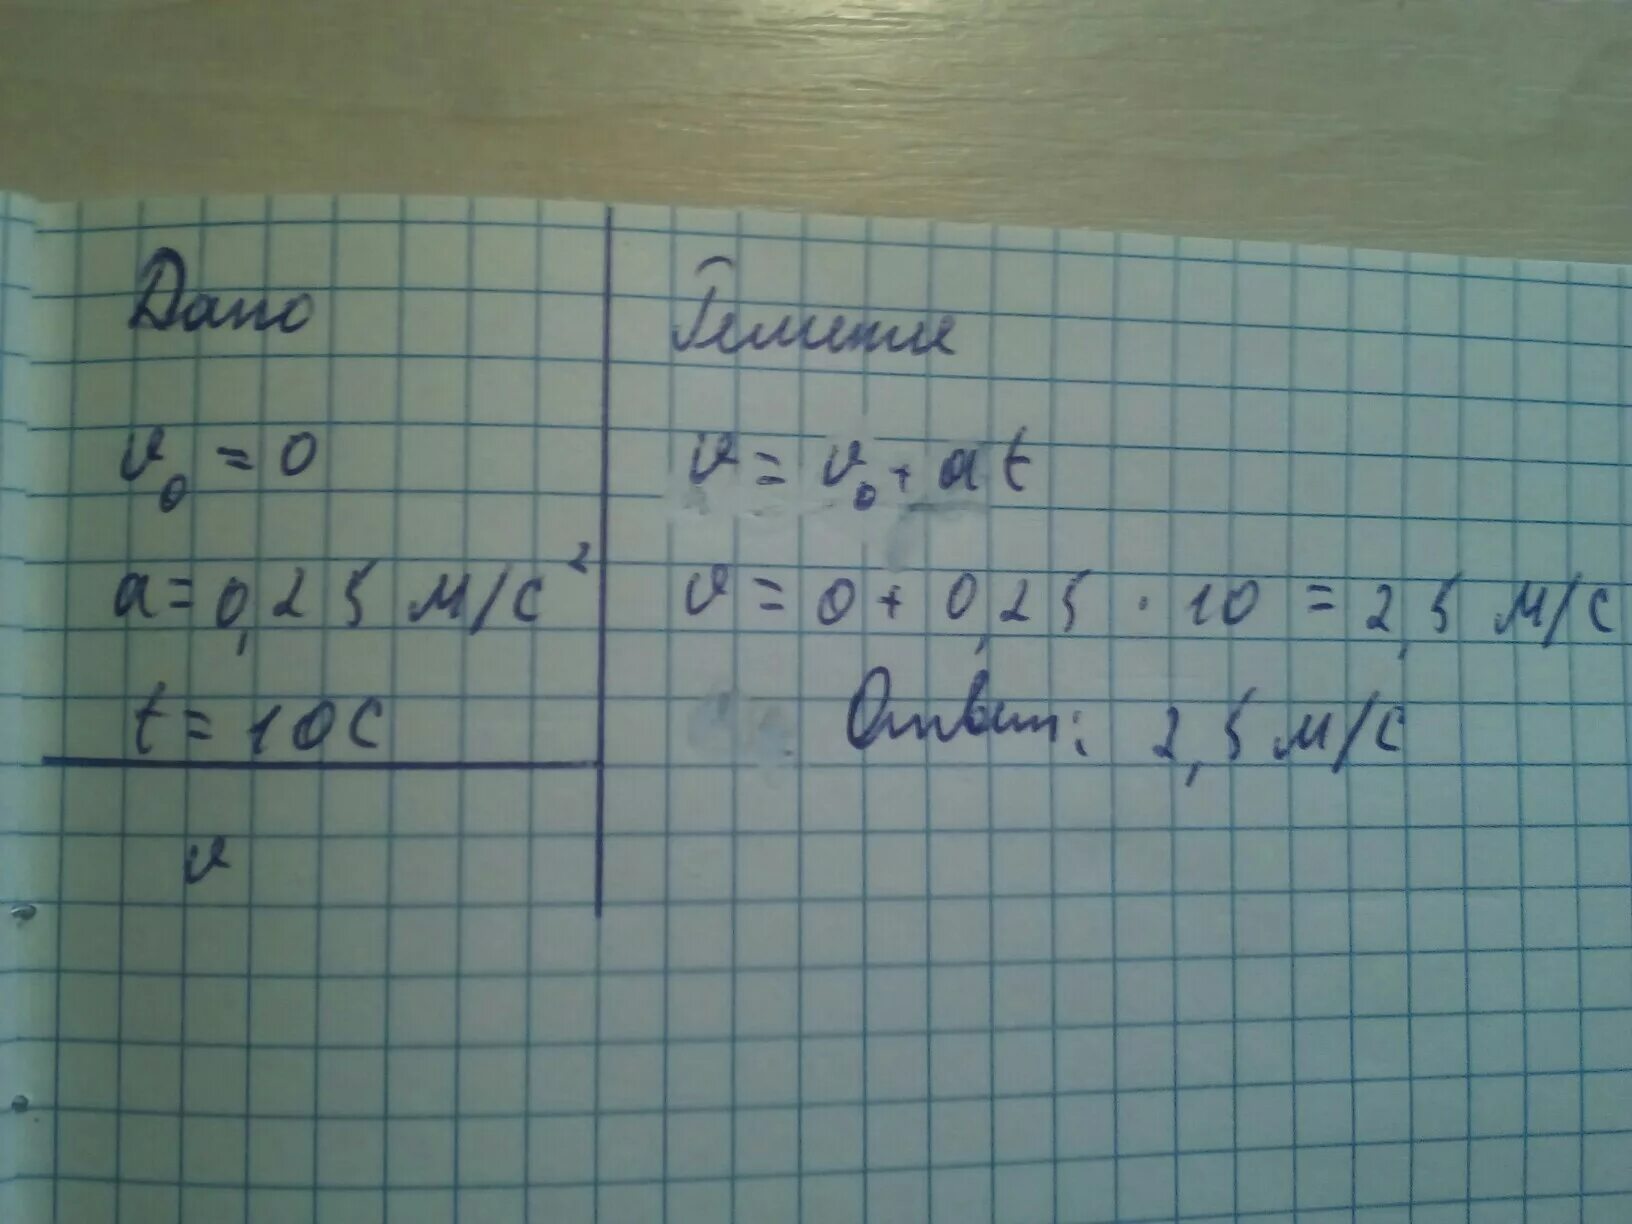 Дано
v₀ = 0
a = 0,25 м/с²
t = 10 с
v
Решение
v = v₀ + at
v = 0 + 0,25 · 10 = 2,5 м/с
Ответ: 2,5 м/с